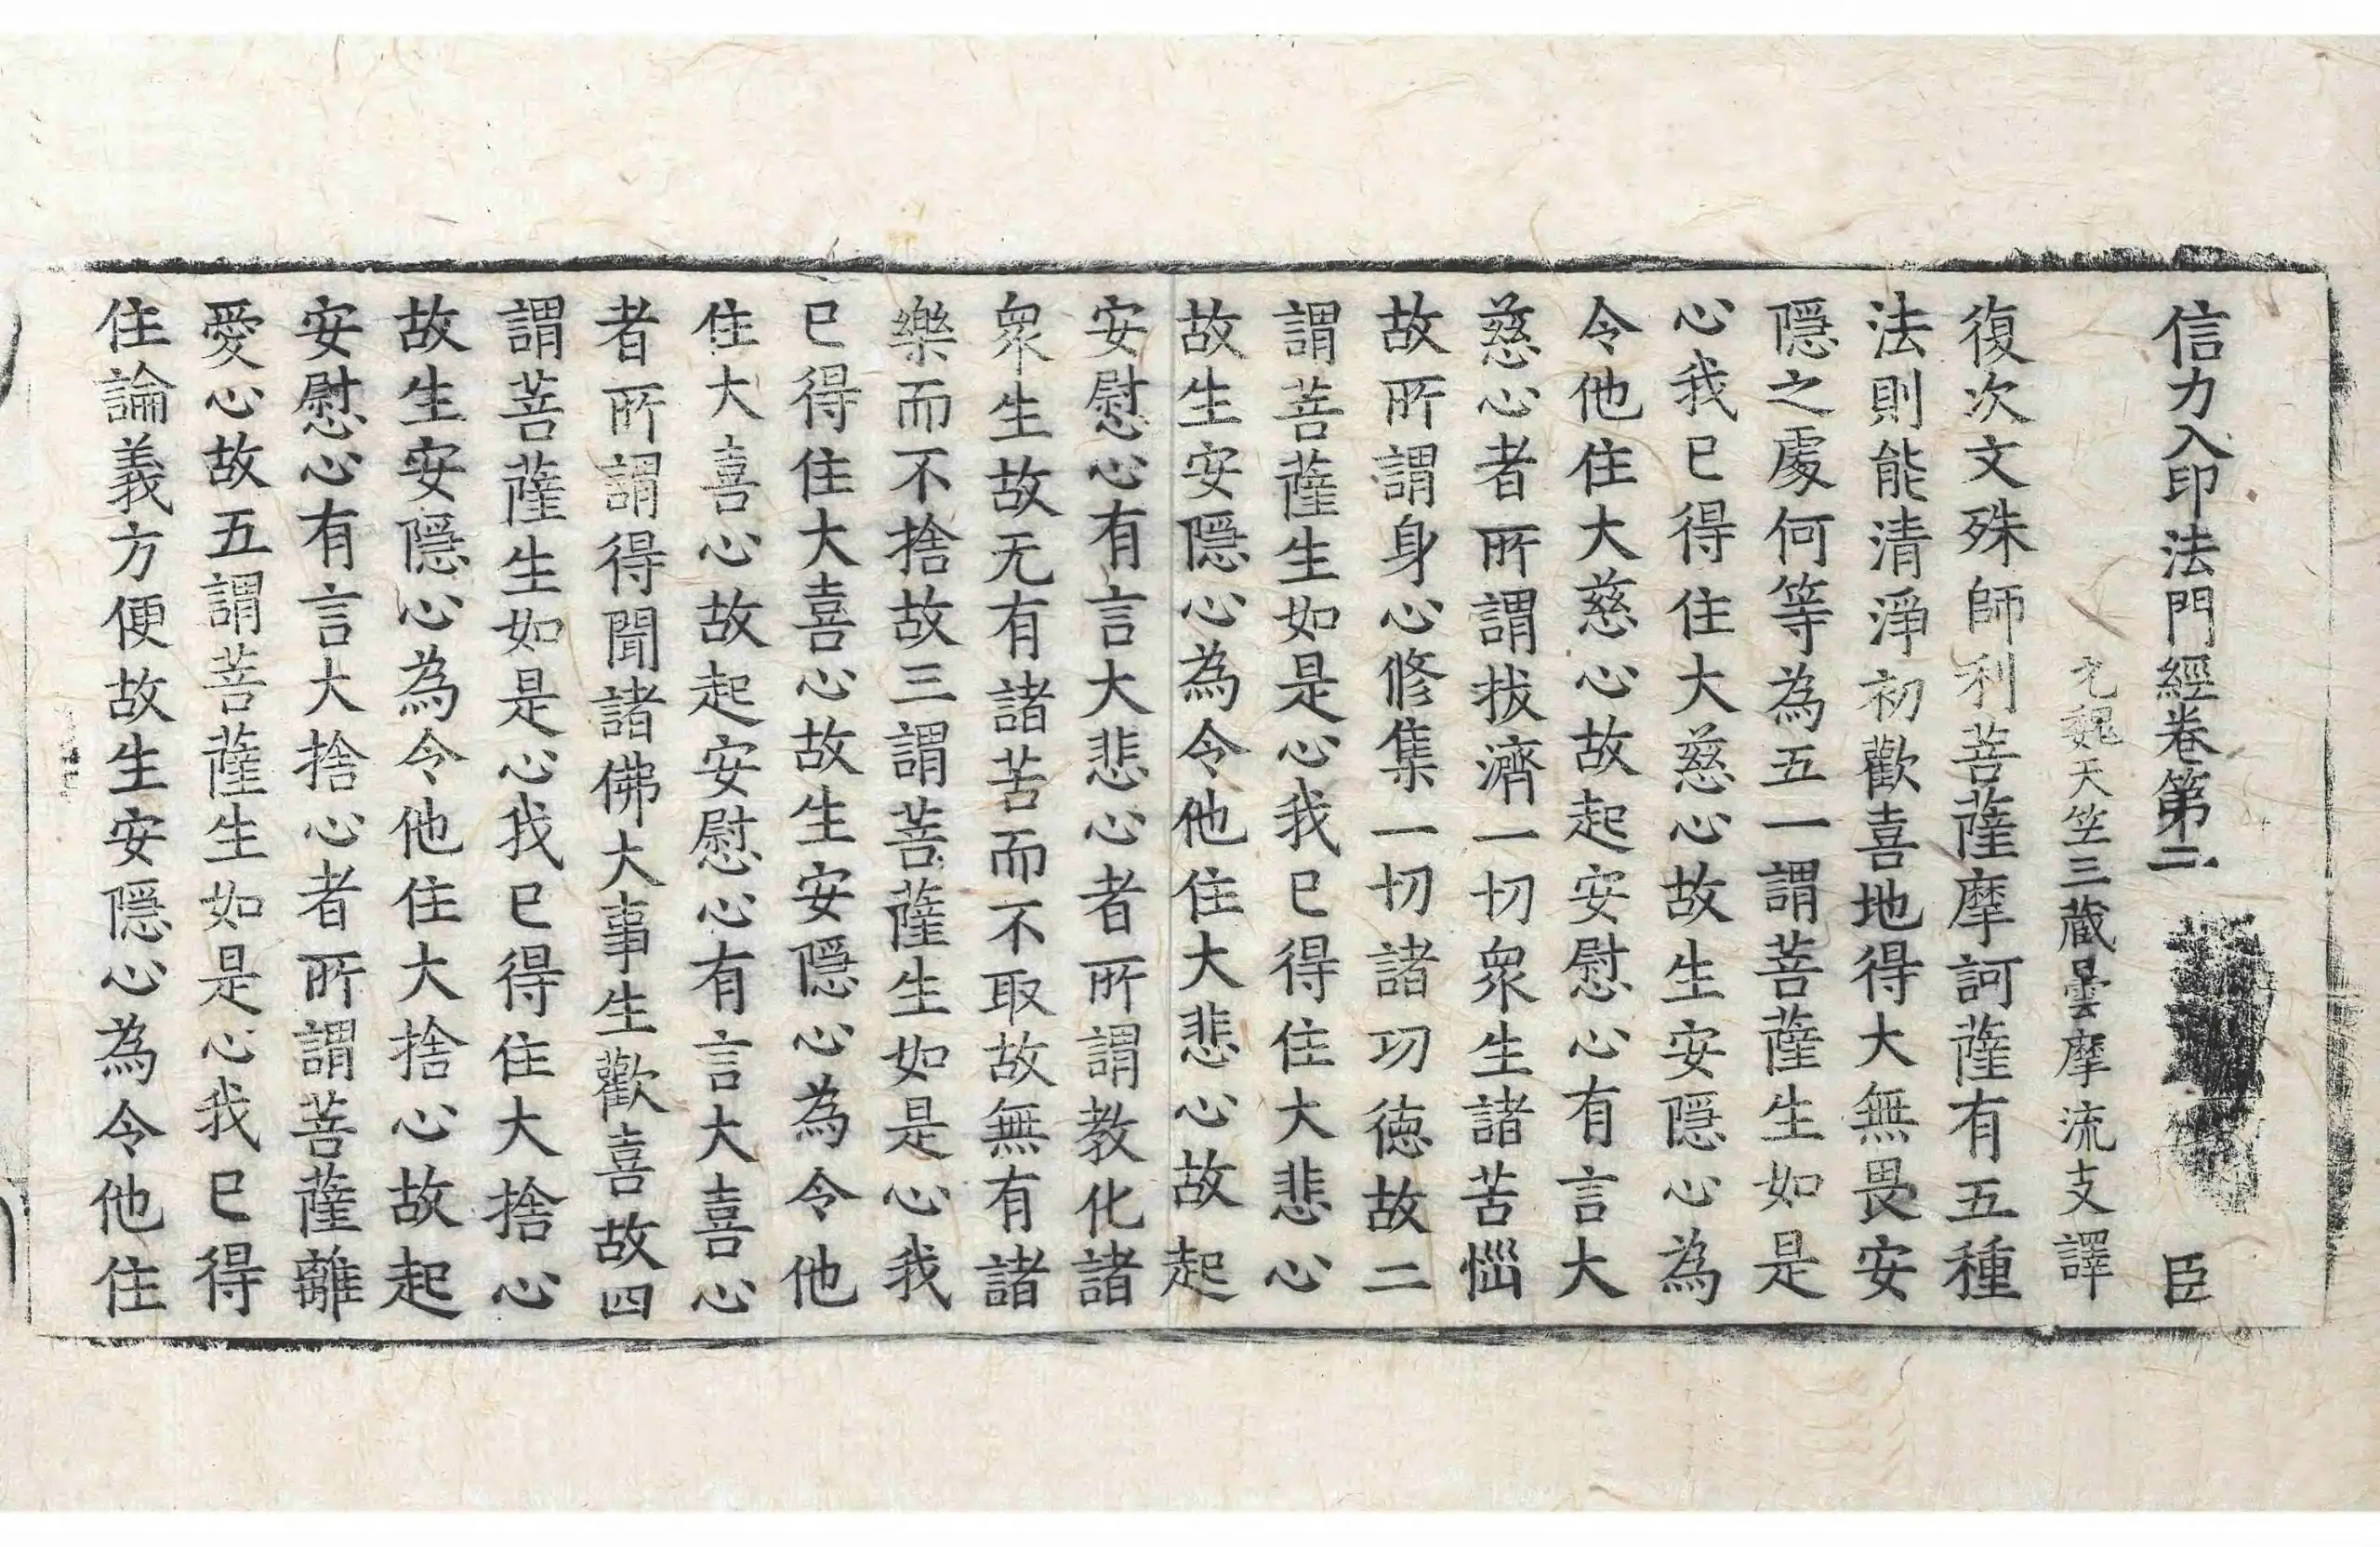 信力入印法門經卷第二 臣
元魏天竺三藏曇摩流支譯
復次文殊師利菩薩摩訶薩有五種
法則能清淨初歡喜地得大無畏安
隱之處何等為五一謂菩薩生如是
心我已得住大慈心故生安隱心為
令他住大慈心故起安慰心有言大
慈心者所謂拔濟一切眾生諸苦惱
故所謂身心修集一切諸功德故二
謂菩薩生如是心我已得住大悲心
故生安隱心為令他住大悲心故起
安慰心有言大悲心者所謂教化諸
眾生故无有諸苦而不取故無有諸
樂而不捨故三謂菩薩生如是心我
已得住大喜心故生安隱心為令他
住大喜心故起安慰心有言大喜心
者所謂得聞諸佛大事生歡喜故四
謂菩薩生如是心我已得住大捨心
故生安隱心為令他住大捨心故起
安慰心有言大捨心者所謂菩薩離
愛心故五謂菩薩生如是心我已得
住論義方便故生安隱心為令他住